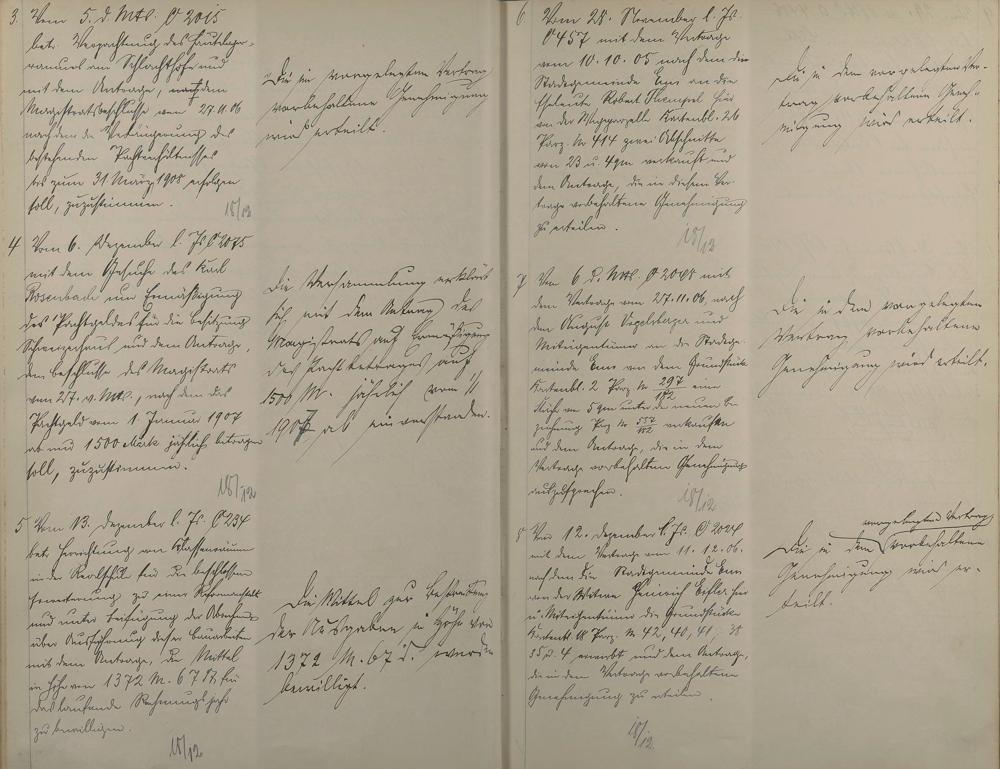 3. Vom 5. d. Mts. C 2015
betr. Verpachtung des Häutelager-
raumes am Schlachthofe und
mit dem Antrage, nachdem
Magistratsbeschlusse vom 27.11.06
nachdem die Verlängerung des
bestehenden Pachtverhältnisses
bis zum 31 März 1908 erfolgen
soll, zuzustimmen.
18/12
Die im vorgelegten Vertrag
vorbehaltene Genehmigung
wird erteilt.
4 Vom 6. Dezember l. Js C 2075
mit dem Gesuche des Karl
Rosenbach um Ermäßigung
des Pachtgeldes für die Besitzung
Schweizerhaus und dem Antrage,
dem Beschlusse des Magistrats
vom 27. v. Mts., nach dem das
Pachtgeld vom 1 Januar 1907
ab nur 1500 Mark jährlich betragen
soll, zuzustimmen.
18/12
Die Versammlung erklärt
sich mit dem Antrag des
Magistrats auf Ermäßigung
des Pachtbetrages auf
1500 M. jährlich vom 1/1
1907 ab einverstanden.
5 Vom 13. Dezember l. Js. C 234
betr. Herrichtung von Klassenräumen
in der Realschule für die beschlossene
Erweiterung zu einer Reformanstalt
und unter Beifügung der
über Ausführung dieser Bauarbeiten
mit dem Antrage, die Mittel
in Höhe von 1372 M. 67 d. für
das laufende Rechnungsjahr
zu bewilligen.
18/12
Die Mittel zur Bestreitung
der Ausgaben in Höhe von
1372 M. 67 d. werden
bewilligt.
6. Vom 28. November l. Js.
C 457 mit dem Vertrage
vom 10.10.05 nach dem die
Stadtgemeinde Ems an die
Eheleute Robert hier
von der Wegeparzelle Kartenbl. 26
Parz. Nr 414 zwei Abschnitte
von 23 u. 4 qm verkauft und
dem Antrage, die in diesem Ver-
trage vorbehaltene Genehmigung
zu erteilen.
18/12
Die in dem vorgelegten Ver-
trag vorbehaltene Geneh-
migung wird erteilt.
7 Vom 6 d. Mts. C 2048 mit
dem Vertrage vom 27.11.06, nach
dem August Vogelsberger und
Miteigentümer an die Stadtge-
meinde Ems von dem Grundstück
Kartenbl. 2 Parz Nr 297/182 eine
Fläche von 5 qm unter der neuen Be-
zeichnung Parz Nr verkaufen
und dem Antrage, die in dem
Vertrage vorbehaltene Genehmigung
auszusprechen.
18/12
Die in dem vorgelegten
Vertrag vorbehaltene
Genehmigung wird erteilt.
8 Vom 12. Dezember l. Js. C
mit dem Vertrage vom 11.12.06.
nach dem die Stadtgemeinde Ems
von der Witwe Heinrich hier
u. Miteigentümer die Grundstücke
Kartenbl. 18 Parz. Nr 42, 40, 41, 38
35 u. 4 erwirbt und dem Antrage,
die in dem Vertrage vorbehaltene
Genehmigung zu erteilen.
18/12
vorgelegten Vertrag
Die in dem vorbehaltene
Genehmigung wird er-
teilt.